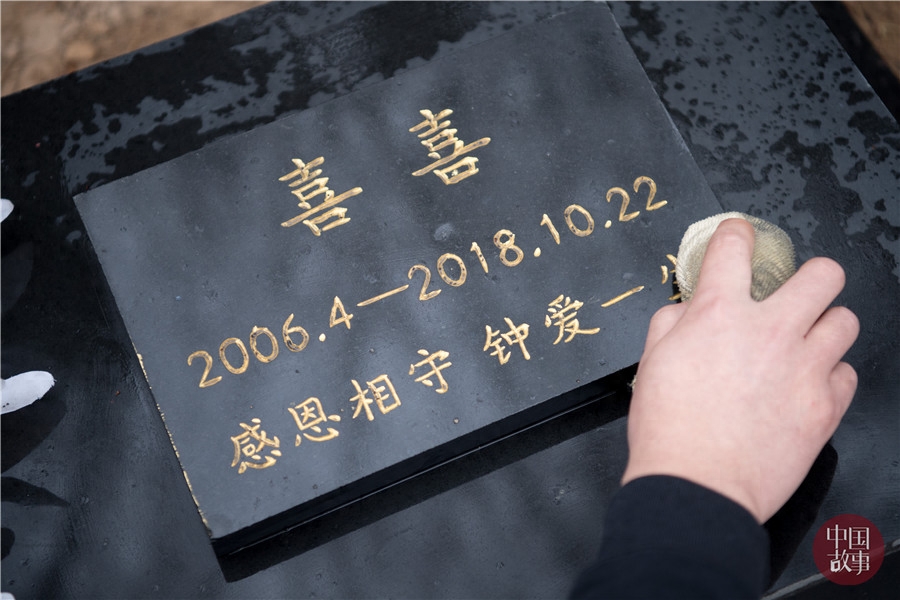 喜喜
2006.4—2018.10.22
感恩相守 钟爱一
中国
故事